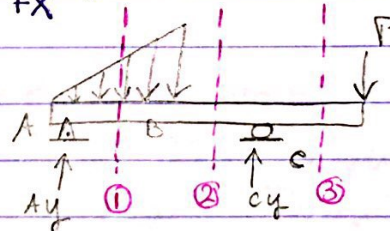 FX
P
A B
C
Ay ① ② Cy ③